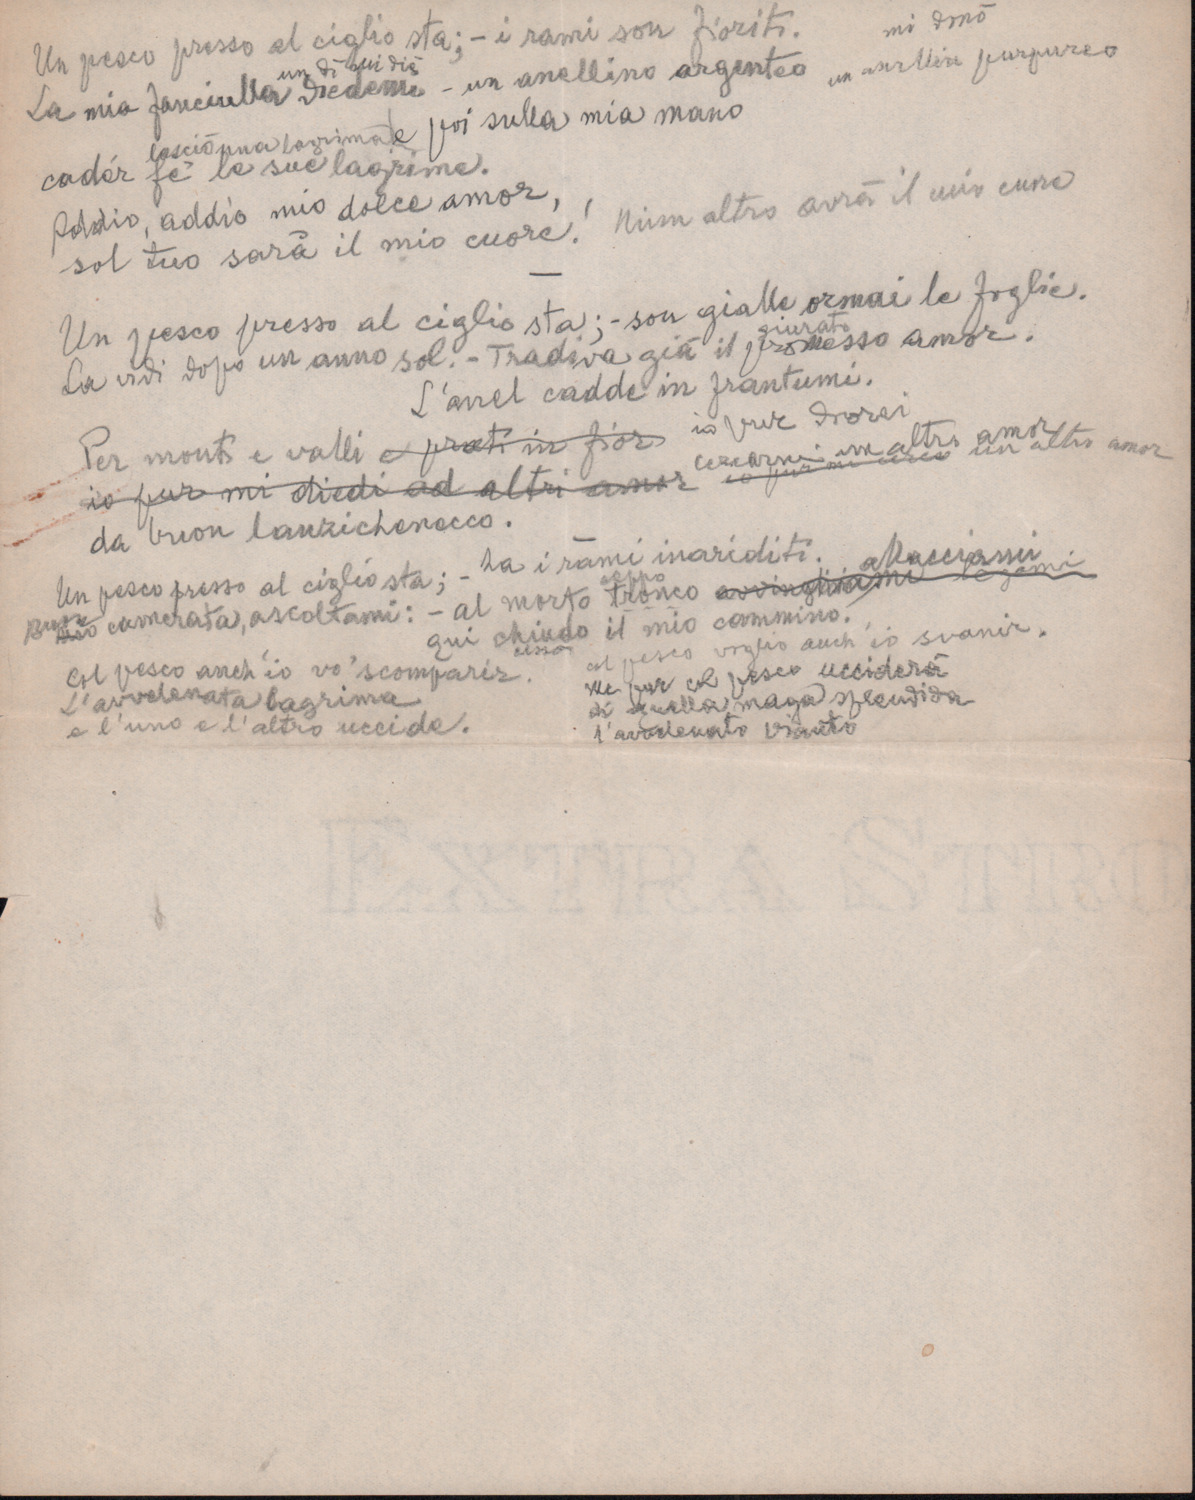 Un pesco presso al ciglio sta; - i rami son fioriti.
mi donò
un dì mi diè
La mia fanciulla diedemi - un anellino argenteo
un anellin purpureo
lasciò una lagrima
e poi sulla mia mano
cadér fè le sue lagrime.
Addio, addio mio dolce amor,
sol tuo sarà il mio cuore!
Niun altro avrà il mio cuore
—
Un pesco presso al ciglio sta; - son gialle ormai le foglie.
giurato
La vidi dopo un anno sol. - Tradiva già il promesso amor.
L'anel cadde in frantumi.
Per monti e valli e prati in fior
io pur
cercarmi un altro amor
io pur mi diedi ad altri amor
io pur mi cerco un altro amor
da buon lanzichenecco.
Un pesco presso al ciglio sta; - ha i rami inariditi.
allacciami
ceppo
Buon
Mio camerata, ascoltami: - al morto tronco avvinghiami legami
qui chiudo il mio cammino.
cesso
Col pesco anch'io vo' scomparir.
L'avvelenata lagrima
e l'uno e l'altro uccide.
col pesco voglio anch'io svanir.
Me pur col pesco ucciderà
di quella maga splendida
l'avvelenato pianto
EXTRA &